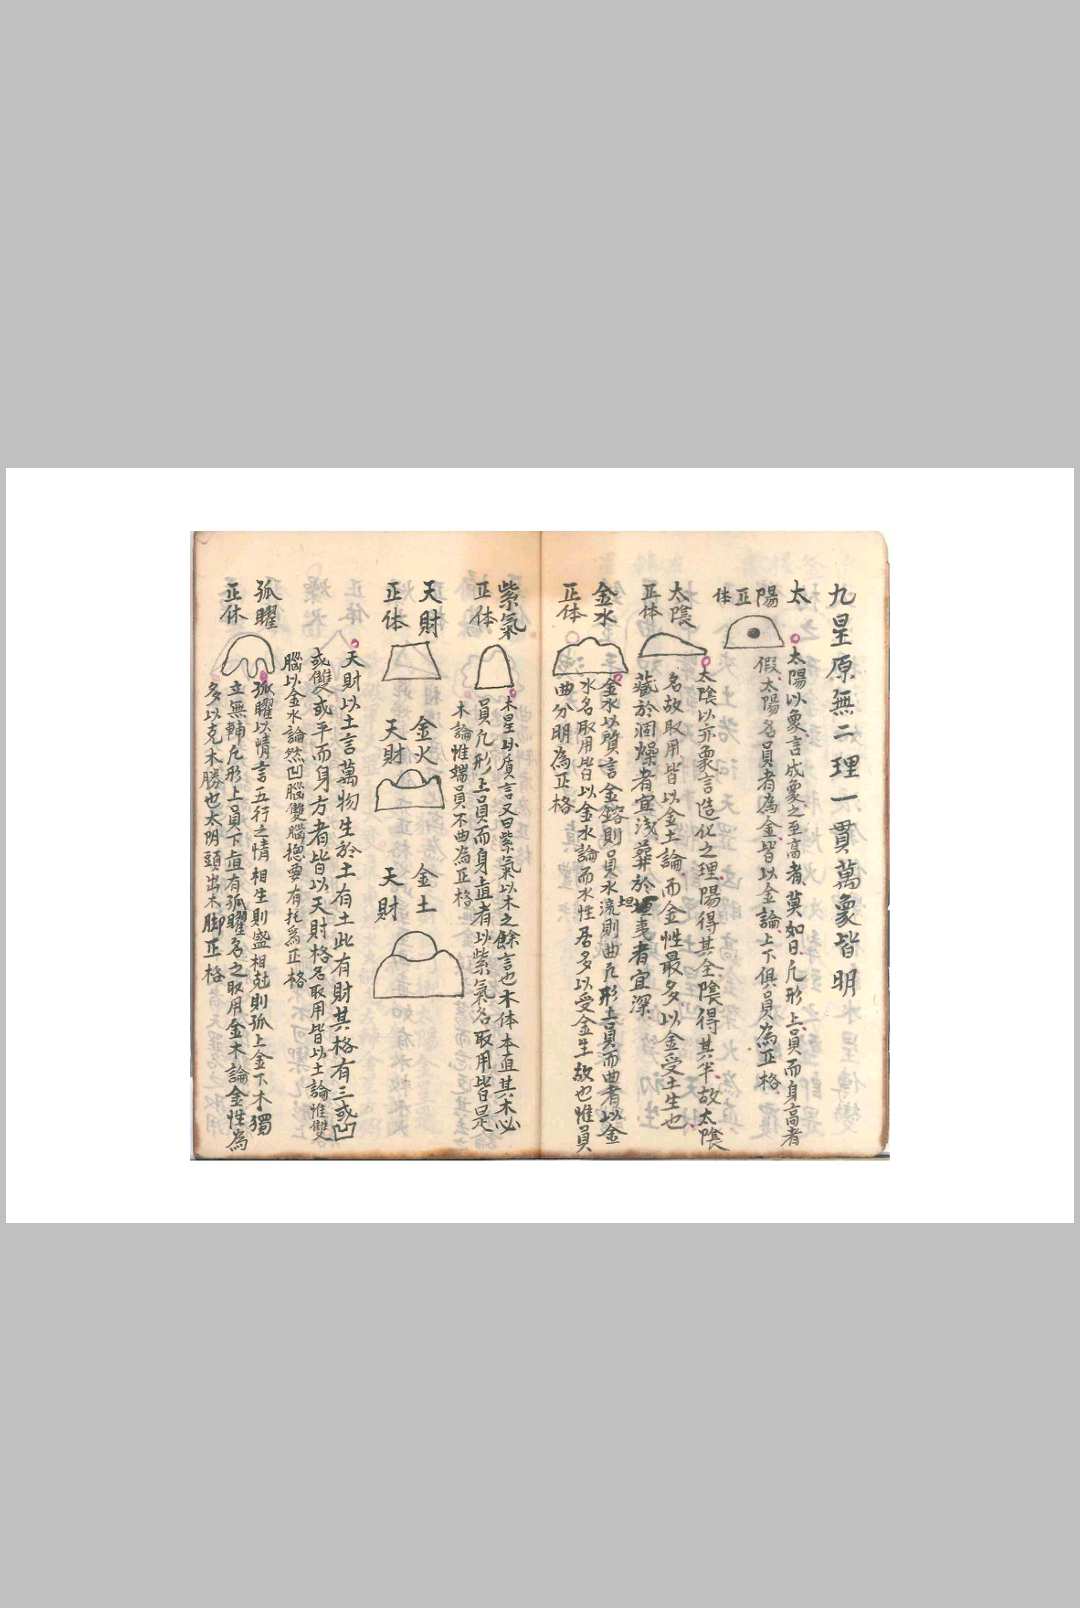 九星原無二理一貫萬象皆明
太陽
正体
太陽以象言成象之至高者莫如日凡形上員而身高者
假太陽名員者為金皆以金論上下俱員為正格
太陰
正体
太陰以亦象言造化之理陽得其全陰得其半故太陰
名故取用皆以金土論而金性最多以金受土生也
藏於涸燥者宜浅葬於坦夷者宜深
金水
正体
金水以質言金鎔則員水流則曲凡形上員而曲者以金
水名取用皆以金水論而水性居多以受金生故也惟員
曲分明為正格
紫氣
正体
木星以質言又曰紫氣以木之餘言也木体本直其木必
員凡形上員而身直者以紫氣名取用皆是
木論惟端員不曲為正格
天財
正体
金火
天財
金土
天財
天財以土言萬物生於土有土此有財其格有三或凹
或雙或平而身方者皆以天財格名取用皆以土論惟雙
腦以金水論然凹腦雙腦揔要有托為正格
孤曜
正体
孤曜以情言五行之情相生則盛相尅則孤上金下木獨
立無輔凡形上員下直有孤曜名之取用金木論金性為
多以克木勝也太阴頭出木脚正格